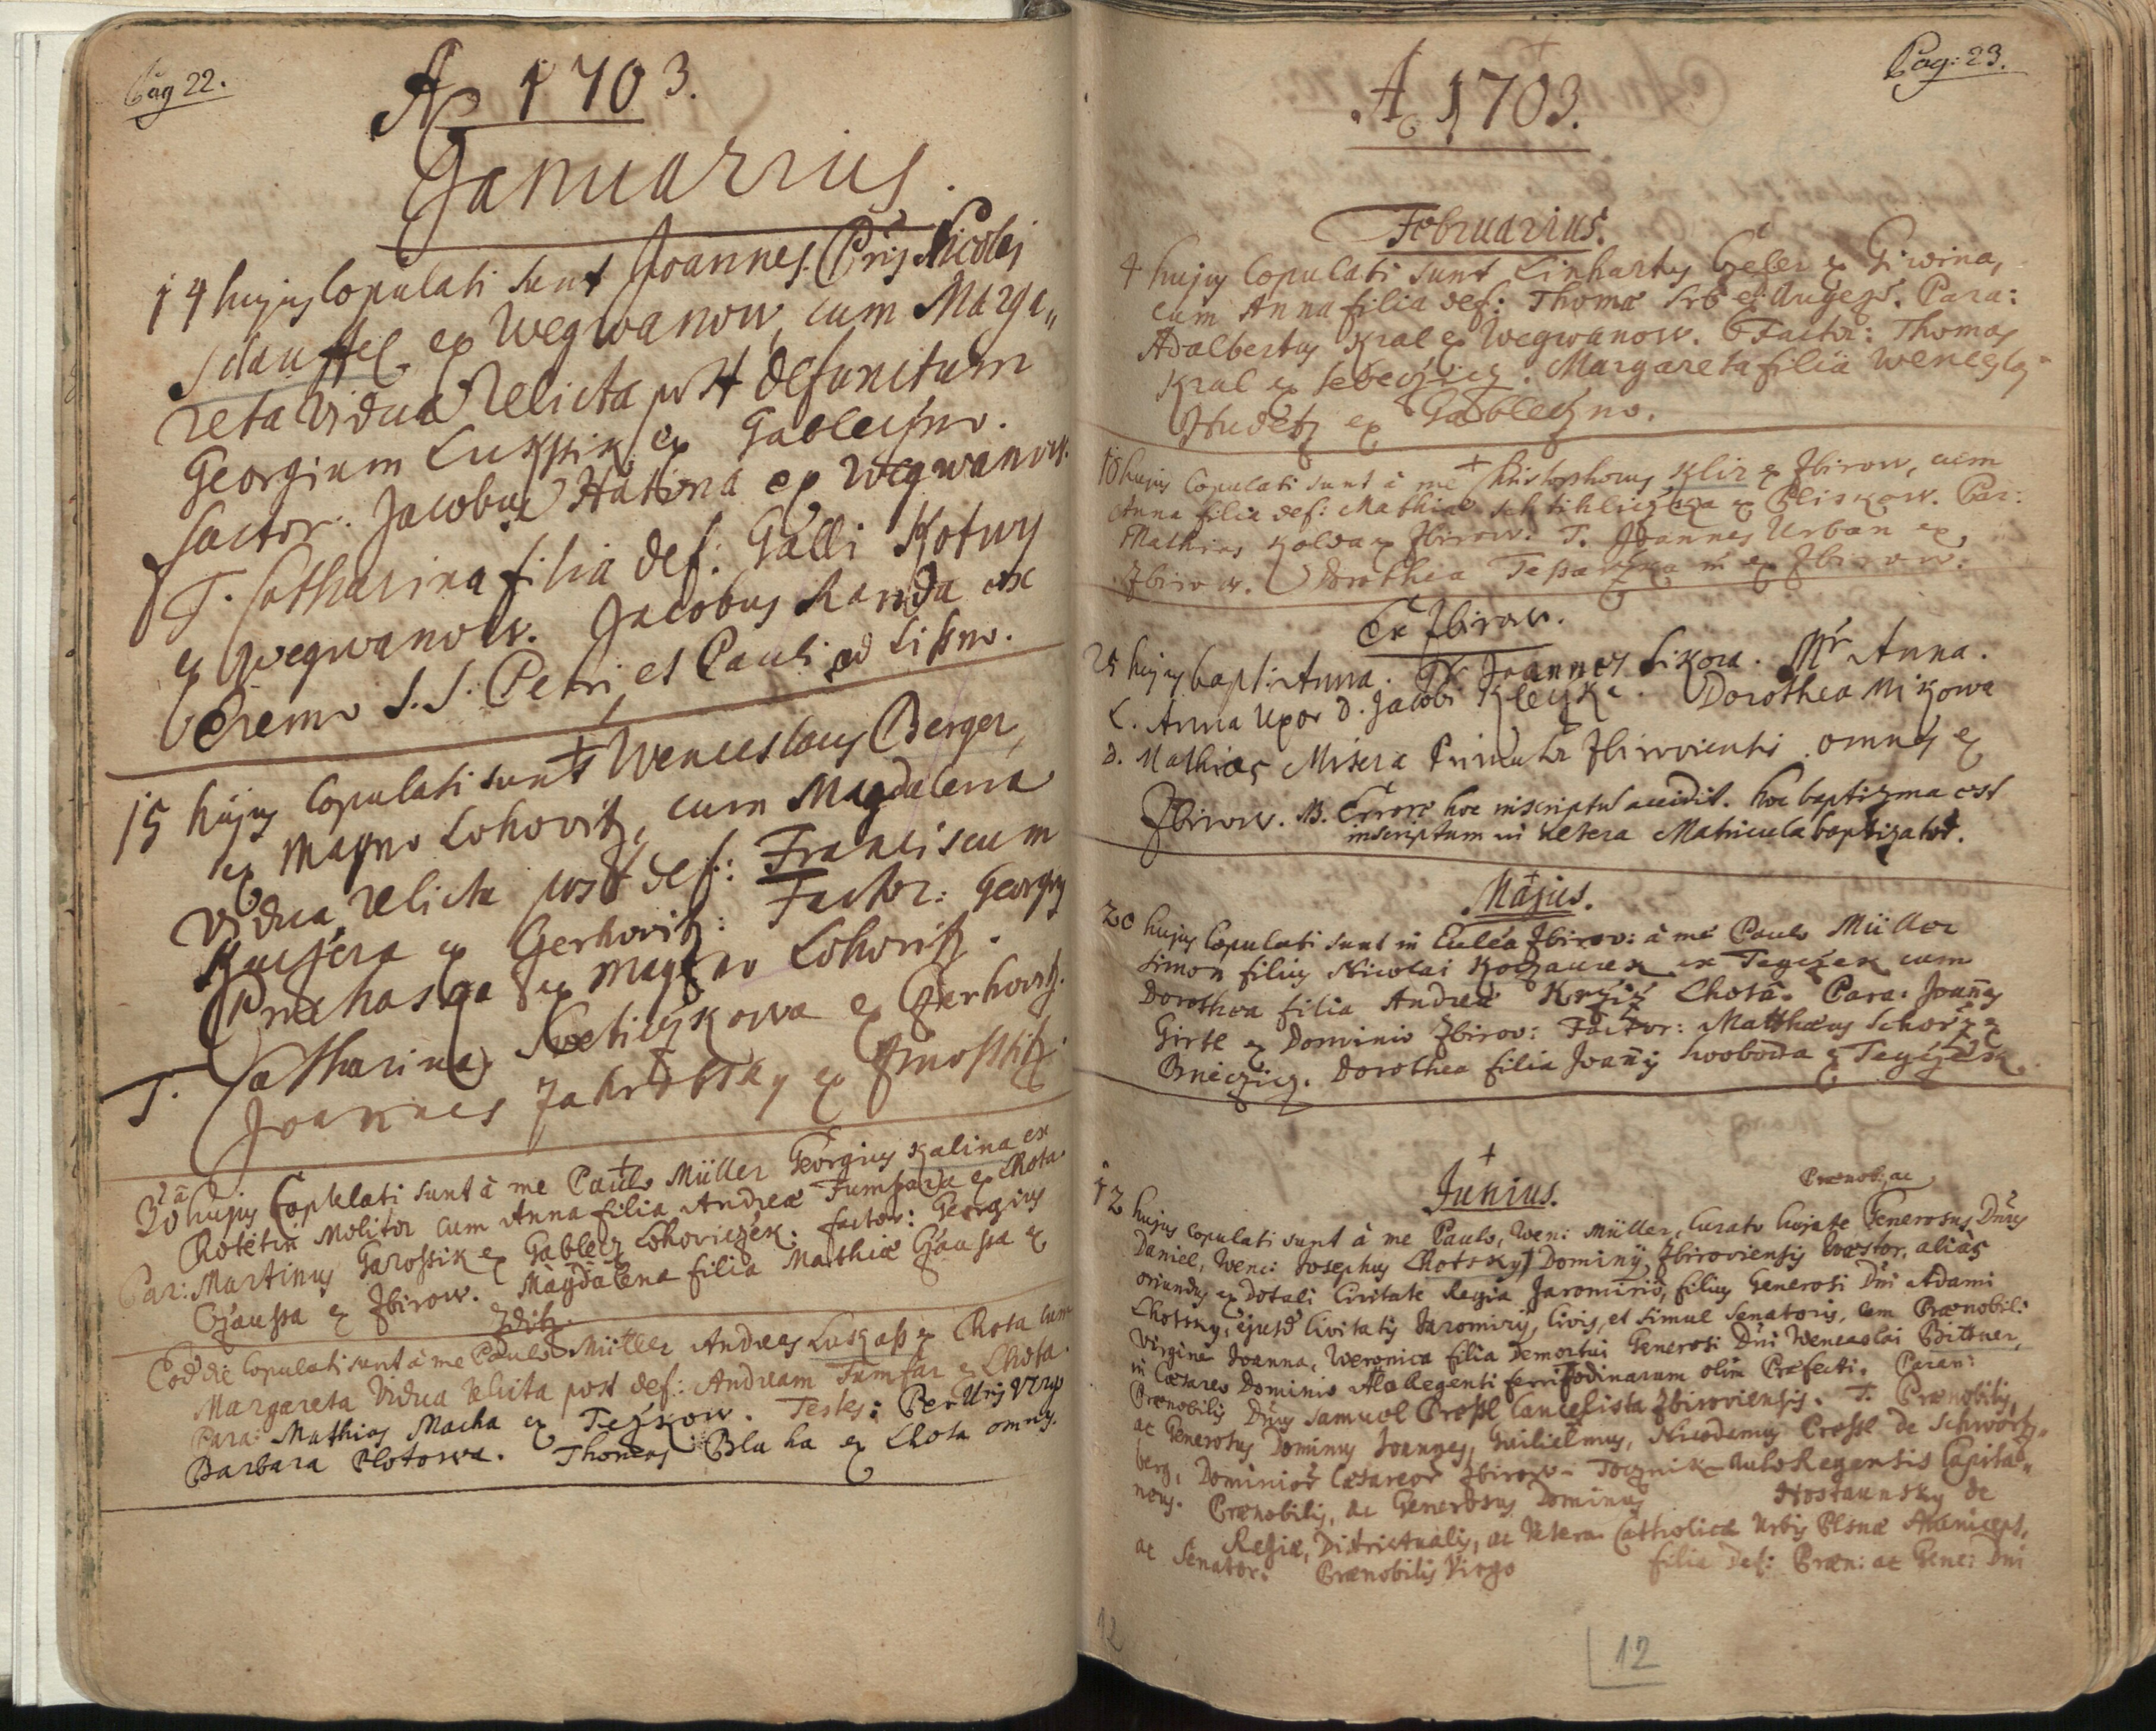 Pag 22.
Ao 1703.
Januarius.
14 hujus Copulati sunt Joannes Nicolai
ex Wegwanow, cum Marga„
reta vidua relicta post defunctum
Georgium Lukssik ex Gableczno.
factor: Jacobus Hationa ex Wegwanow.
T. Catharina filia def: Galli Kotwy
ex Wegwanow. Jacobus Randa ex
Eremo S.S. Petri, et Pauli ad Lisno.
15 hujus Copulati sunt Wenceslaus Berger,
ex Magno Lohovitz, cum Magdalena
vidua relicta post def: Franciscum
Kucjera ex Cerhovitz: Factor: Georgy
Prochaska ex Magno Lohovitz.
T. Catharina Sweticzkowa ex Cerhovitz.
Joannes ex
30 hujus Copulati sunt à me Paulo Müller Georgius Kalina ex
Chotetin Molitor cum Anna filia Andreae Fumfara ex Lhota.
Par: Martinus Garossik ex Gablecz Lohoviczek: factor: Georgius
Czaussa ex Zbirow. Magdalena filia Mathiae Czaussa ex
Zditz.
Eod die Copulati sunt à me Paulo Müller Andreas Luskass ex Lhota cum
Margareta Vidua relicta post def: Andream Fumfar ex Lhota.
Para: Mathias Macha ex Teczkow. Testes:
Barbara Plotowa. Thomas Blaha ex Lhota omnes.
Pag: 23.
Ao 1703.
Februarius.
4 hujus Copulati sunt Linhartus ex Giwina,
cum Anna filia def: Thomae Srb ex Augezd. Para:
Adalbertus Kral ex Wegwanow. Factor: Thomas
Kral ex Sebeczicz. Margareta filia
ex Gableczno.
10 hujus Copulati sunt à me Christophorus Klir ex Zbirow, cum
Anna filia def: Mathiae ex Pliskow. Par:
Mathias Kolda ex Zbirow. T. Joannes Urban ex
Zbirow. Dorothea ex Zbirow.
Ex Zbirow.
25 hujus bapti: Anna. Pr Joannes Sikora. Mr Anna.
L. Anna Uxor D. Jacobi Kleczka. Dorothea Mikowa
D. Mathias Misera Primator Zbiroviensis omnes ex
Zbirow. NB. Errore hoc inscriptu accidit. hoc baptizma est
inscriptum in altera Matricula baptizator.
Majus.
20 hujus Copulati sunt in Eccléa Zbirov: à me Paulo Müller
Simon filius Nicolai Koczaurek ex Tegczek cum
Dorothea filia Andreae Krziz Lhota. Para: Joannes
Girtl ex Dominio Zbirov: Factor: Matthaeus Schorz ex
Bneczicz. Dorothea filia Joannis Swoboda ex Tegczek.
Junius.
Praenob: ac
12 hujus Copulati sunt à me Paulo, Wen: Müller, Curato hujate Generosus Dnus
Daniel, Wenc: Josephus Lhotsky, Dominij Zbiroviensis Quaestor, aliàs
oriundus ex dotali Civitate Regia Jaromirio, filius Generosi Dni Adami
Lhotsky, ejusd Civitatis Jaromirij, Civis, et simul Senatoris, cum Praenobili
Virgine Joanna, Weronica filia demortui Generosi Dni Wenceslai Bittner,
in Caesareo Dominio Alae Regenti ferrifodinarum olim Praefecti. Paran:
Praenobilis Dnus Samuel Prossl Cancelista Zbiroviensis. T. Praenobilis,
ac Generosus Dominus Joannes, Guilielmus, Nicodemus Prossl de Schwortz„
berg, Dominior Caesareor Zbirow- Tocznik- Aulo Regensis Capita„
neus. Praenobilis, ac Generosus Dominus Hostaunsky de
Regiae, Districtualis, ac Vetero Catholicae Urbis Plsnae
ac Senator. Praenobilis Virgo filia def: Praen: ac Gene: Dni
12
12